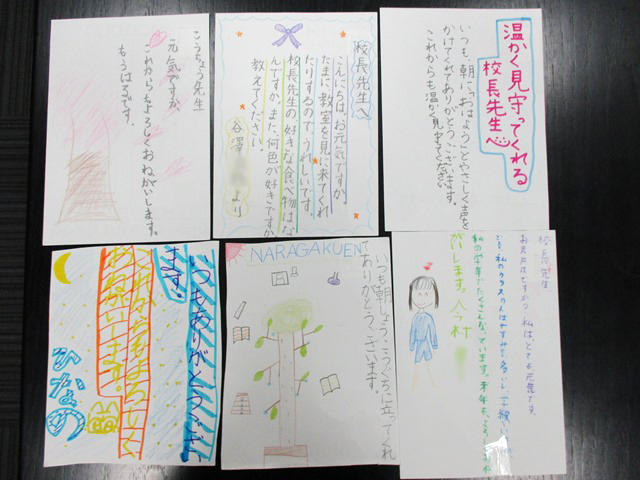 こうちょう先生
元気ですか。
これからもよろしくおねがいします。
もうはるです。
校長先生へ
こんにちは。お元気ですか。
たまに教室を見に来てくれ
たりするのでうれしいです。
校長先生の好きな食べ物はな
んですか。また、何色が好きですか
教えてください。
谷澤 より
温かく見守ってくれる
校長先生へ
いつも、朝に「おはよう」とやさしく声を
かけてくれてありがとうございます。
これからも温かく見守ってください
いつもありがとうござい
ます。
これからもよろしく
おねがいします。
ひなの
NARAGAKUEN
いつも朝しょうこうぐちに立ってくれ
てありがとうございます。
校長先生
お元気ですか？私は、とても元気です。
私のクラスの
私の学年でたくさん
がいします。 村